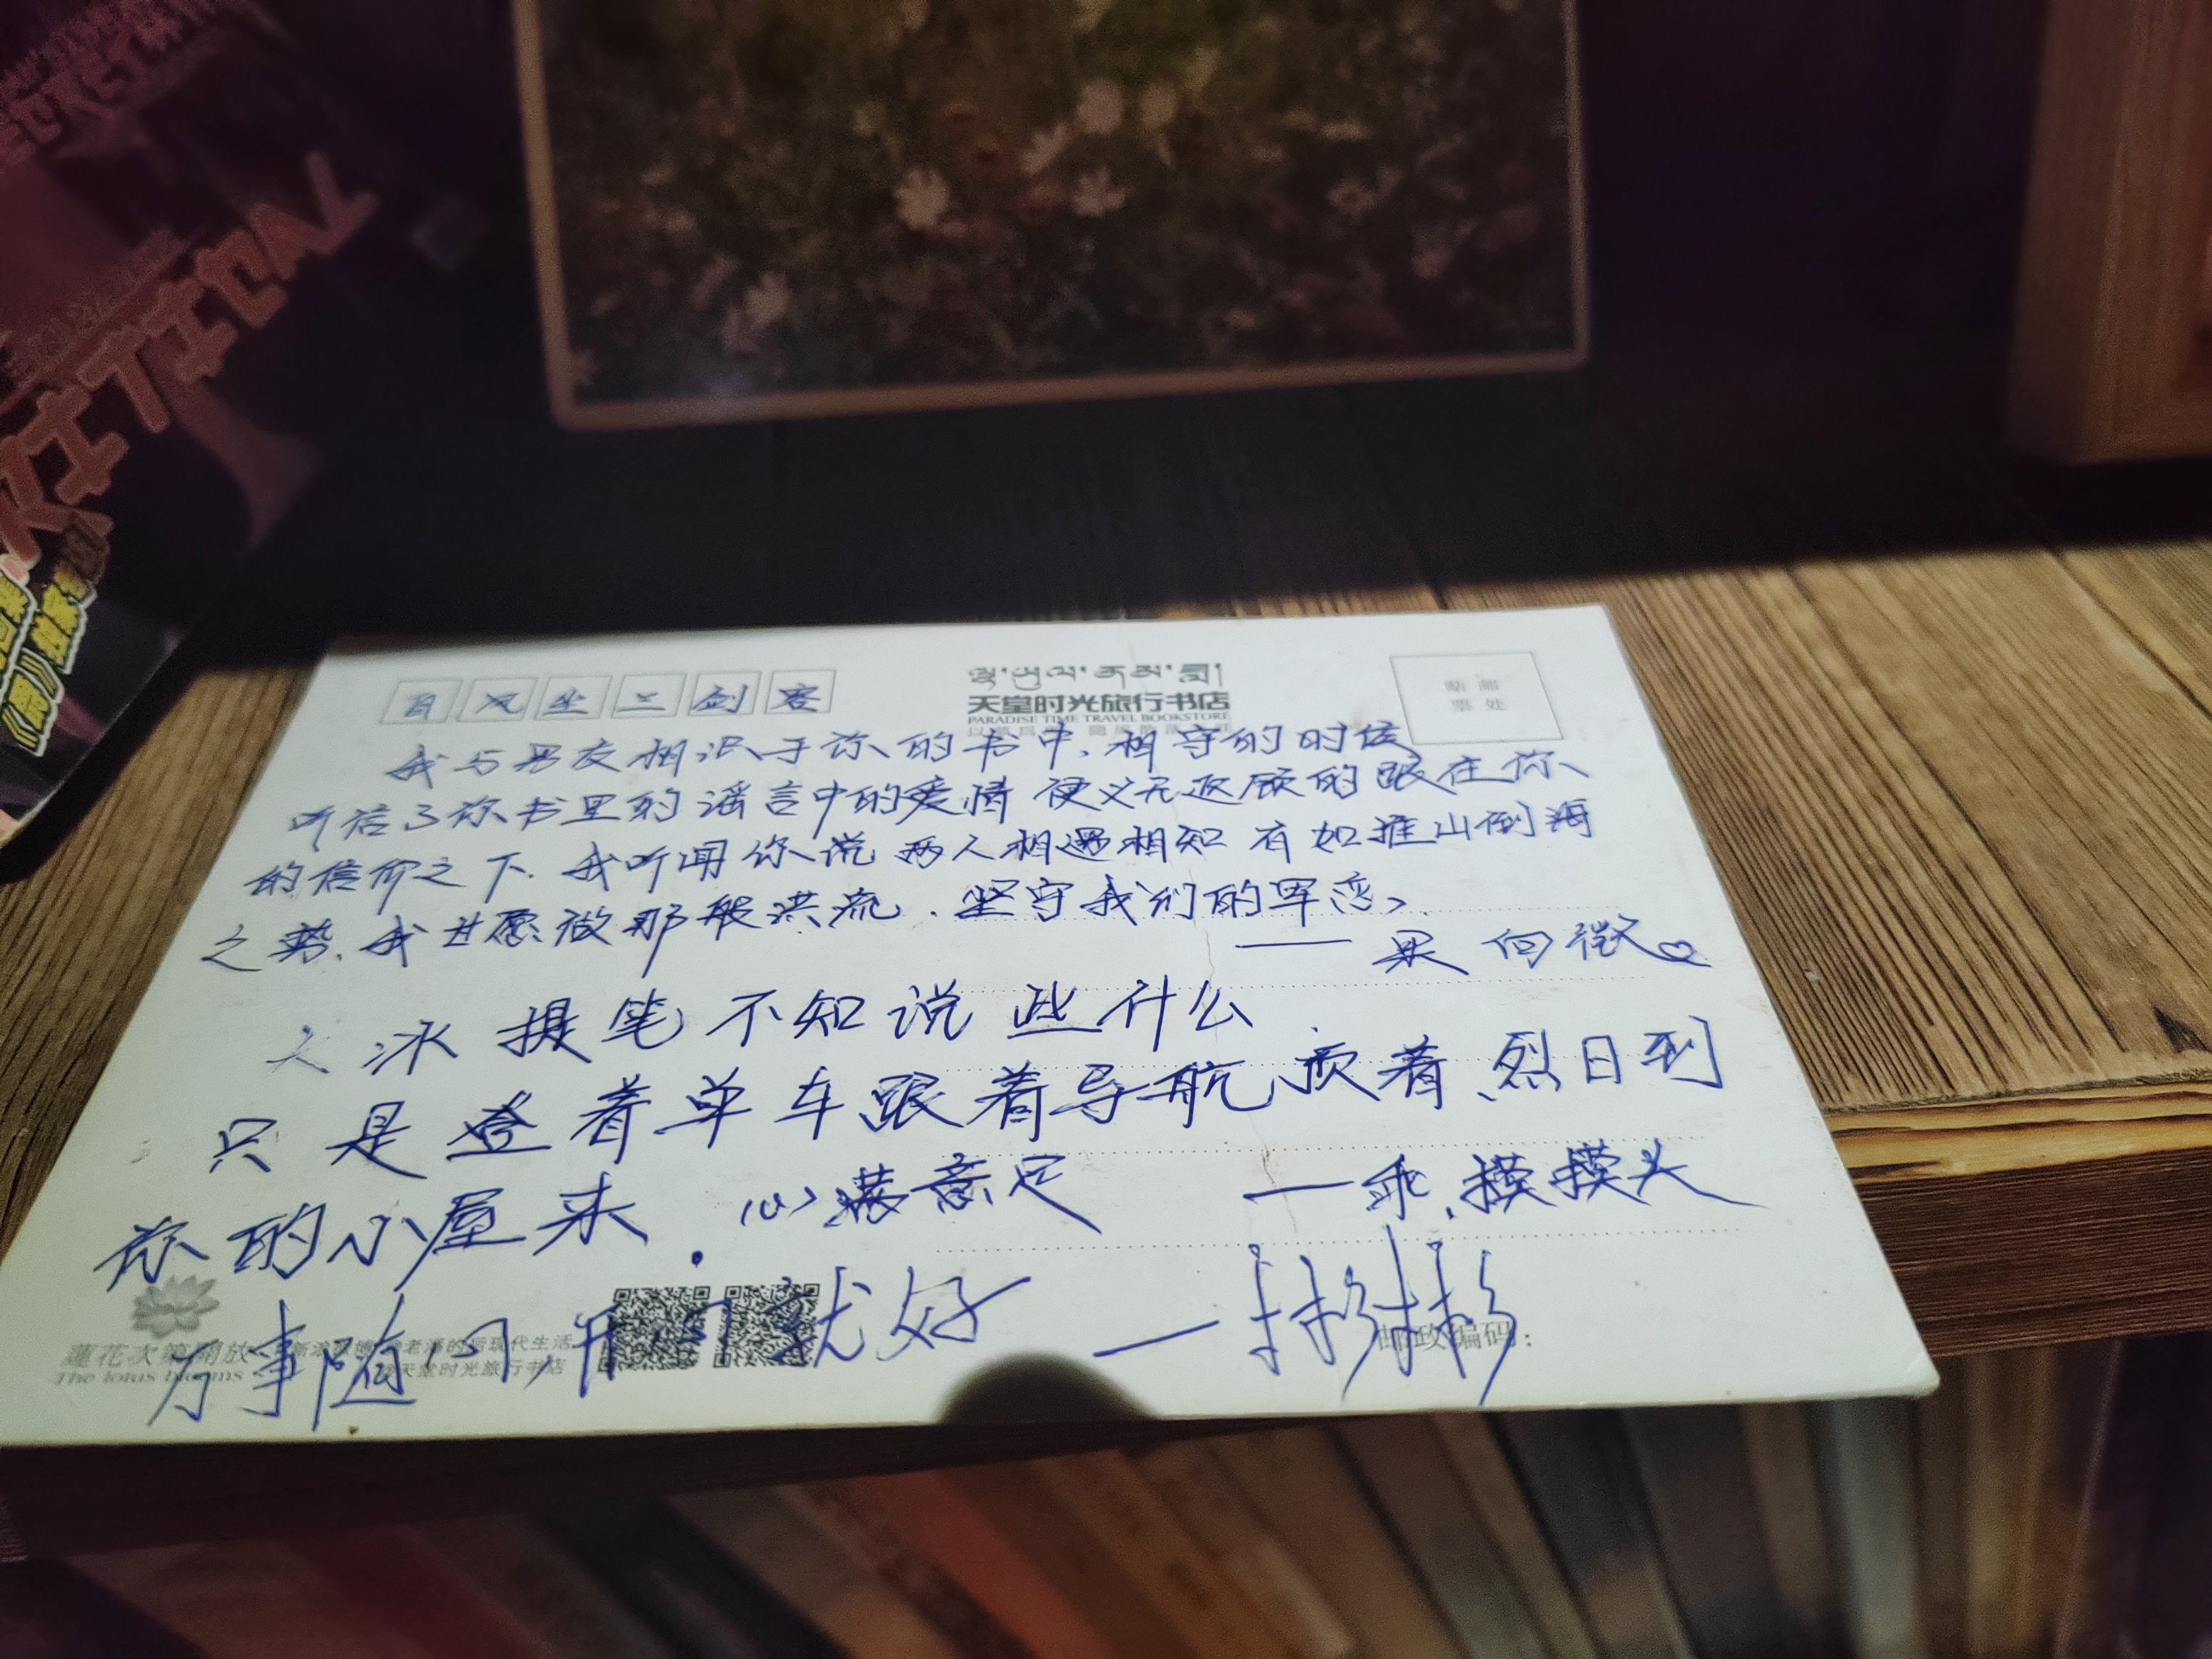 天堂时光旅行书店
PARADISE TIME TRAVEL BOOKSTORE
我与男友相识于你的书中,相守的时候
听信了你书里的谣言中的爱情 便义无返顾的跟在你
的信仰之下.我听闻你说 两人相遇相知 有如推山倒海
之势.我甘愿做那般洪流.坚守我们的军恋、
大冰 提笔不知说些什么
只是登着单车跟着导航顶着烈日到
你的小屋来.心满意足 —乖,摸摸头
万事随心,开心就好
蓮花次第開放
The lotus blooms
天堂时光旅行书店
邮政编码: